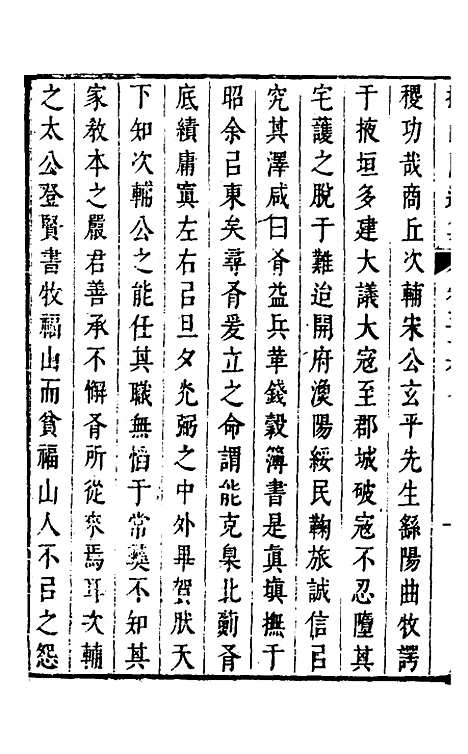 稷功哉商丘次輔宋公玄平先生繇陽曲牧諤
于掖垣多建大議大寇至郡城破寇不忍墮其
宅護之脫于難迨開府漁陽綏民鞠旅誠信㠯
究其澤咸曰胥益兵革錢穀簿書是真塡撫于
昭余㠯東矣尋胥爰立之命謂能克臬北薊胥
底績庸寘左右㠯旦夕光弼之中外畢賀肰天
下知次輔公之能任其職無慆于常彝不知其
家教本之嚴君善承不懈胥所從來焉耳次輔
之太公登賢書牧福山而貧福山人不㠯之怨